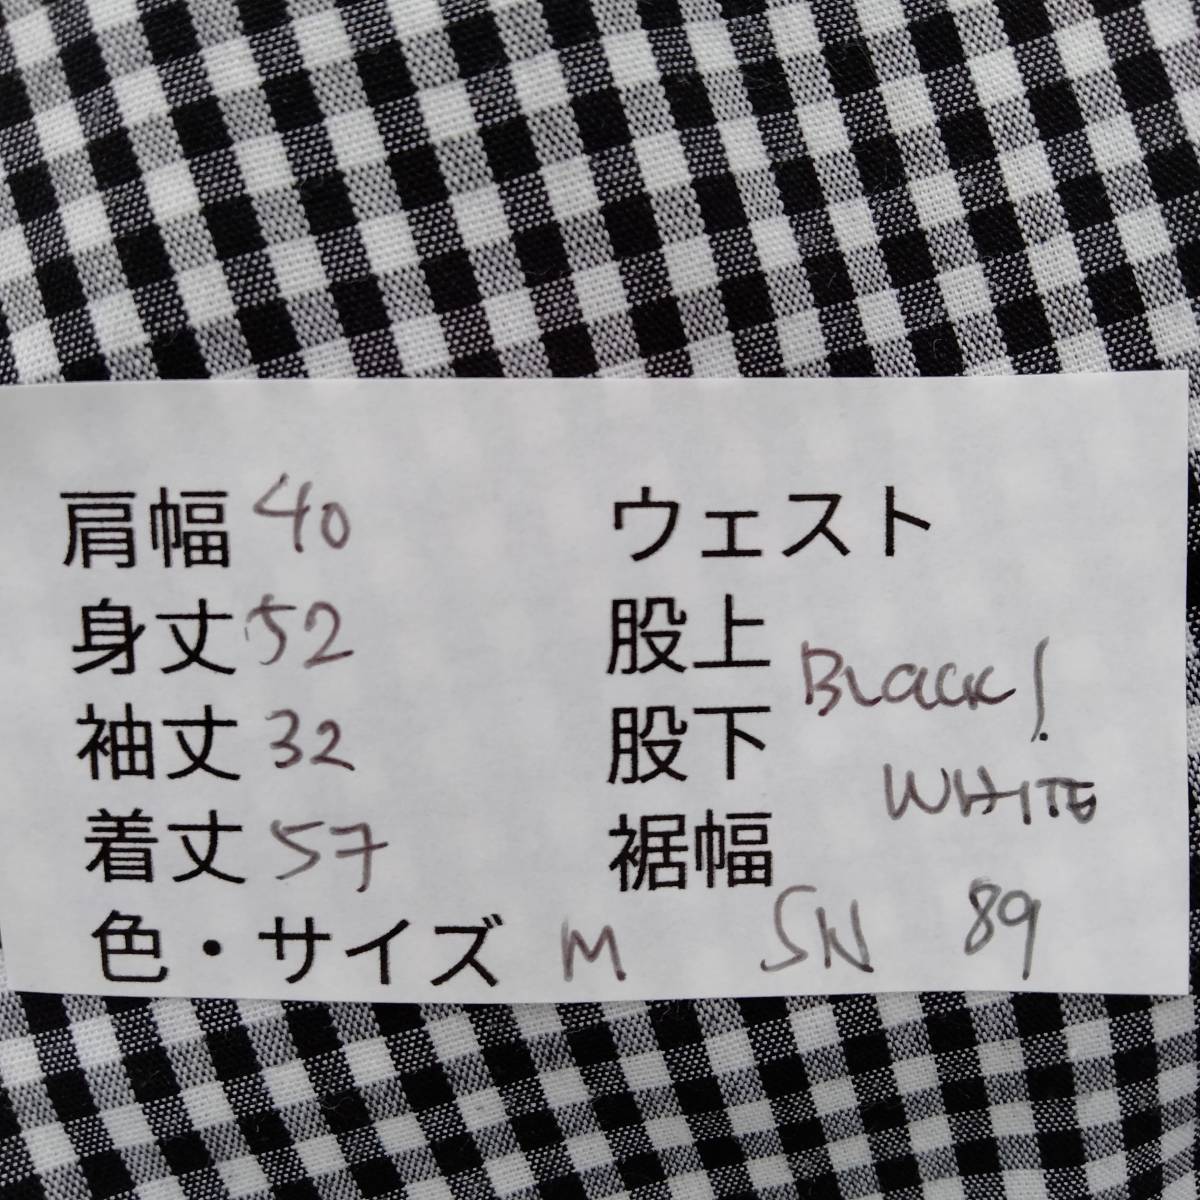 肩幅 40
身丈 52
袖丈 32
着丈 57
ウェスト
股上
股下
裾幅
BLACK/
WHITE
色・サイズ M SN 89